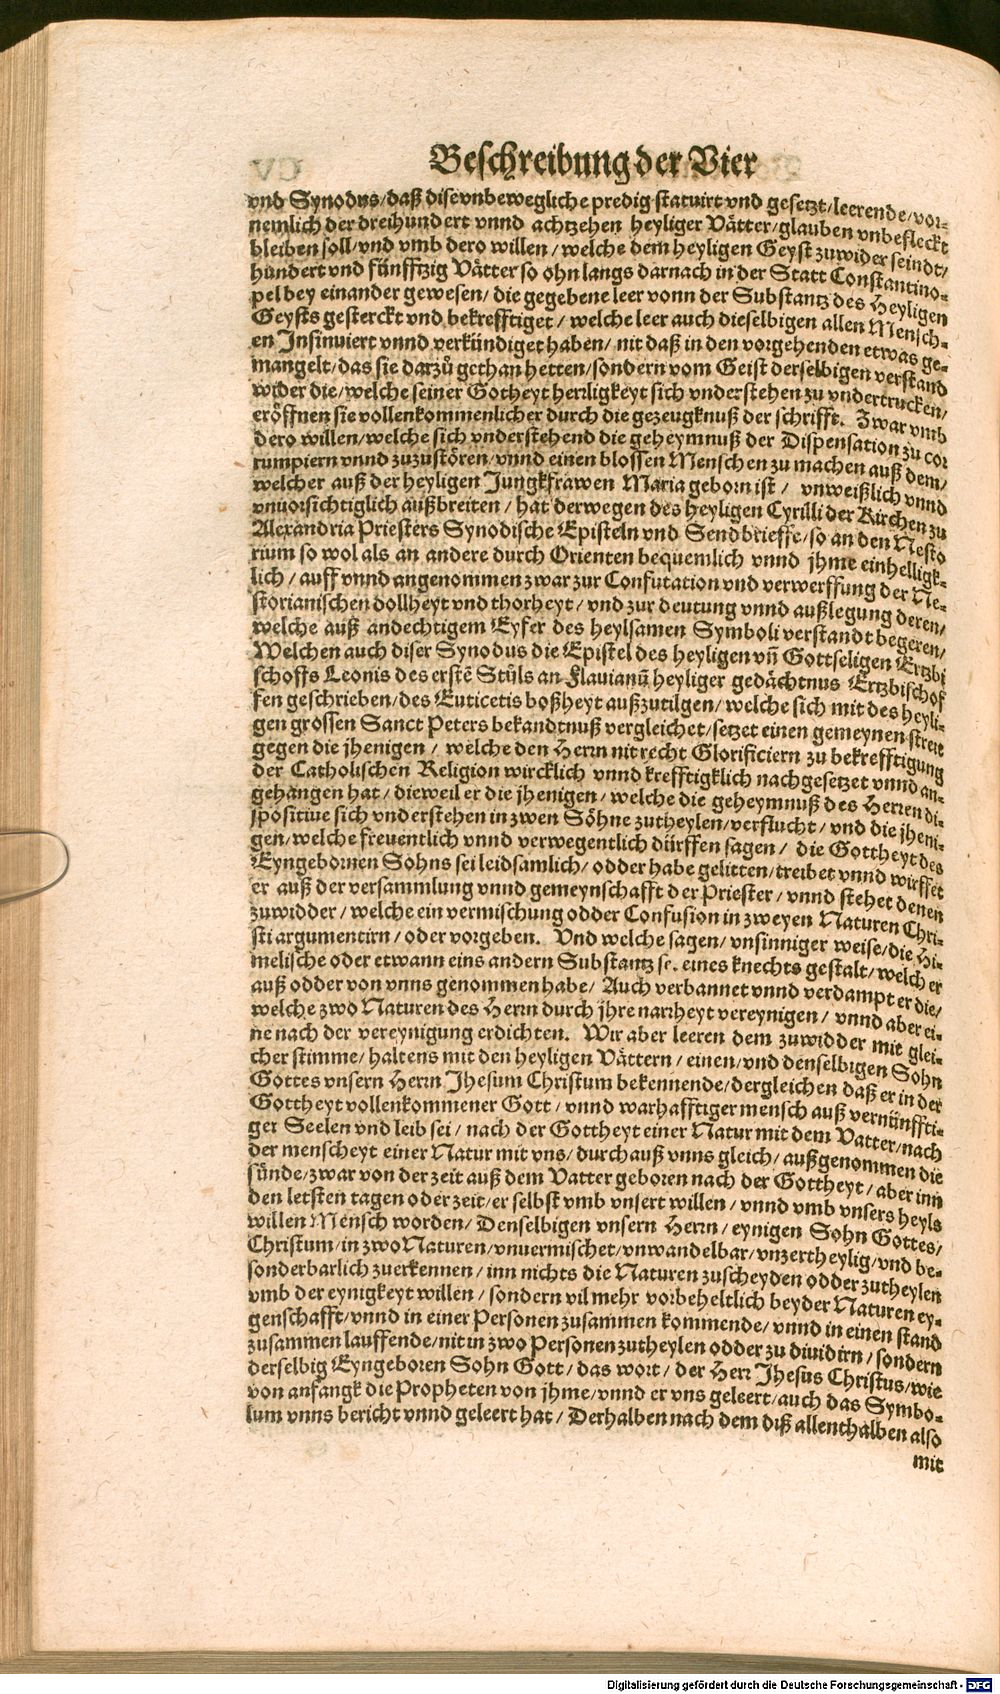 Beschreibung der Vier
vnd Synodus/daß dise vnbewegliche predig statuirt vnd gesetzt/leerende/vor-
nemlich der dreihundert vnnd achtzehen heyliger Vätter/glauben vnbefleckt
bleiben soll/vnd vmb dero willen/welche dem heyligen Geyst zuwider seindt/
hundert vnd fünfftzig Vätter so ohn langs darnach in der Statt Constantino-
pel bey einander gewesen/die gegebene leer vonn der Substantz des Heyligen
Geysts gesterckt vnd bekrefftiget/welche leer auch dieselbigen allen Mensch-
en Insinuiert vnnd verkündiget haben/nit daß in den vorgehenden etwas ge-
mangelt/das sie darzů gethan hetten/sondern vom Geist derselbigen verstand
wider die/welche seiner Gotheyt herrligkeyt sich vnderstehen zu vndertrucken/
eröffnen sie vollenkommenlicher durch die gezeugknuß der schrifft. Zwar vmb
dero willen/welche sich vnderstehend die geheymnuß der Dispensation zu cor
rumpiern vnnd zuzustören/vnnd einen blossen Menschen zu machen auß dem/
welcher auß der heyligen Jungkfrawen Maria geborn ist/ vnweißlich vnnd
vnuorsichtiglich außbreiten/hat derwegen des heyligen Cyrilli der Kirchen zu
Alexandria Priesters Synodische Episteln vnd Sendbrieffe/so an den Nesto
rium so wol als an andere durch Orienten bequemlich vnnd jhme einhelligk-
lich/auff vnnd angenommen zwar zur Confutation vnd verwerffung der Ne-
storianischen dollheyt vnd thorheyt/vnd zur deutung vnnd außlegung deren/
welche auß andechtigem Eyfer des heylsamen Symboli verstandt begeren/
Welchen auch diser Synodus die Epistel des heyligen vñ Gottseligen Ertzbi
schoffs Leonis des erstẽ Stůls an Flauianũ heyliger gedächtnus Ertzbischof
fen geschrieben/des Euticetis boßheyt außzutilgen/welche sich mit des heyli-
gen grossen Sanct Peters bekandtnuß vergleichet/setzet einen gemeynen streit
gegen die jhenigen/ welche den Herrn nit recht Glorificiern zu bekrefftigung
der Catholischen Religion wircklich vnnd krefftigklich nachgesetzet vnnd an-
gehangen hat/dieweil er die jhenigen/welche die geheymnuß des Herren di-
spositiue sich vnderstehen in zwen Söhne zutheylen/verflucht/vnd die jheni-
gen/welche freuentlich vnnd verwegentlich dürffen sagen/ die Gottheyt des
Eyngebornen Sohns sei leidsamlich/odder habe gelitten/treibet vnnd wirffet
er auß der versammlung vnnd gemeynschafft der Priester/vnnd stehet denen
zuwidder/welche ein vermischung odder Confusion in zweyen Naturen Chri-
sti argumentirn/oder vorgeben. Vnd welche sagen/vnsinniger weise/die Hi-
melische oder etwann eins andern Substantz sei eines knechts gestalt/welcher
auß odder von vnns genommen habe/ Auch verbannet vnnd verdampt er die/
welche zwo Naturen des Herrn durch jhre narrheyt vereynigen/vnnd aber ei-
ne nach der vereynigung erdichten. Wir aber leeren dem zuwidder mit glei-
cher stimme/haltens mit den heyligen Vättern/einen/vnd denselbigen Sohn
Gottes vnsern Herrn Jhesum Christum bekennende/dergleichen daß er in der
Gottheyt vollenkommener Gott/vnnd warhafftiger mensch auß vernünffti-
ger Seelen vnd leib sei/nach der Gottheyt einer Natur mit dem Vatter/nach
der menscheyt einer Natur mit vns/durchauß vnns gleich/außgenommen die
sünde/zwar von der zeit auß dem Vatter geboren nach der Gottheyt/aber inn
den letsten tagen oder zeit/er selbst vmb vnsert willen/vnnd vmb vnsers heyls
willen Mensch worden/Denselbigen vnsern Herrn/eynigen Sohn Gottes/
Christum/in zwo Naturen/vnuermischet/vnwandelbar/vnzertheylig/vnd be-
sonderbarlich zuerkennen/inn nichts die Naturen zuscheyden odder zutheylen
vmb der eynigkeyt willen/sondern vil mehr vorbeheltlich beyder Naturen ey-
genschafft/vnnd in einer Personen zusammen kommende/vnnd in einen stand
zusammen lauffende/nit in zwo Personen zutheylen odder zu dividirn/sondern
derselbig Eyngeboren Sohn Gott/das wort/der Herr Jhesus Christus/wie
von anfangk die Propheten von jhme/vnnd er vns geleert/auch das Symbo-
lum vnns bericht vnnd geleert hat/Derhalben nach dem diß allenthalben also
mit
Digitalisierung gefördert durch die Deutsche Forschungsgemeinschaft - DFG